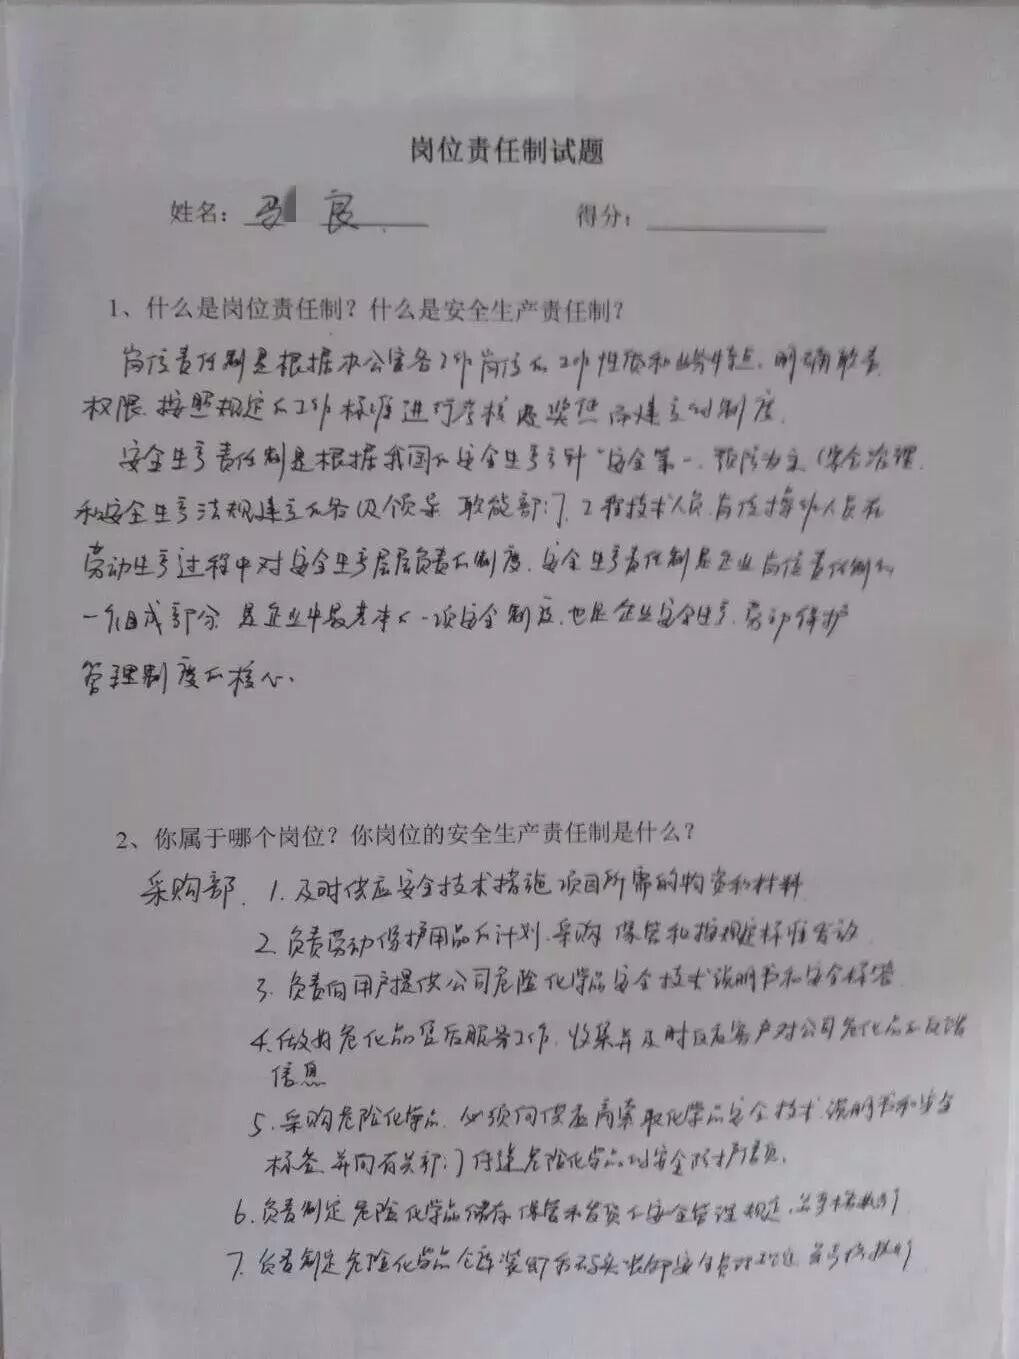 岗位责任制试题
姓名：马 良 得分：
1、什么是岗位责任制？什么是安全生产责任制？
岗位责任制是根据办公室各工作岗位的工作性质和业务特点，明确职责、
权限、按照规定的工作标准进行考核及奖惩而建立的制度。
安全生产责任制是根据我国的安全生产方针"安全第一、预防为主、综合治理
和安全生产法规建立的各级领导、职能部门、工程技术人员、岗位操作人员在
劳动生产过程中对安全生产层层负责的制度。安全生产责任制是企业岗位责任制的
一个组成部分，是企业中最基本的一项安全制度，也是企业安全生产、劳动保护
管理制度的核心。
2、你属于哪个岗位？你岗位的安全生产责任制是什么？
采购部. 1.及时供应安全技术措施项目所需的物资和材料
2.负责劳动保护用品的计划、采购、保管和按规定标准发放
3.负责向用户提供公司危险化学品安全技术说明书和安全标签
4.做好危化品售后服务工作，收集并及时反应客户对公司危化品的反馈
信息
5.采购危险化学品，必须向供应商索取化学品安全技术说明书和安全
标签，并向有关部门传递危险化学品的安全防护信息。
6.负责制定危险化学品储存、保管和发货的安全管理规定，并严格执行
7.负责制定危险化学品仓库装卸安全管理规定，并严格执行